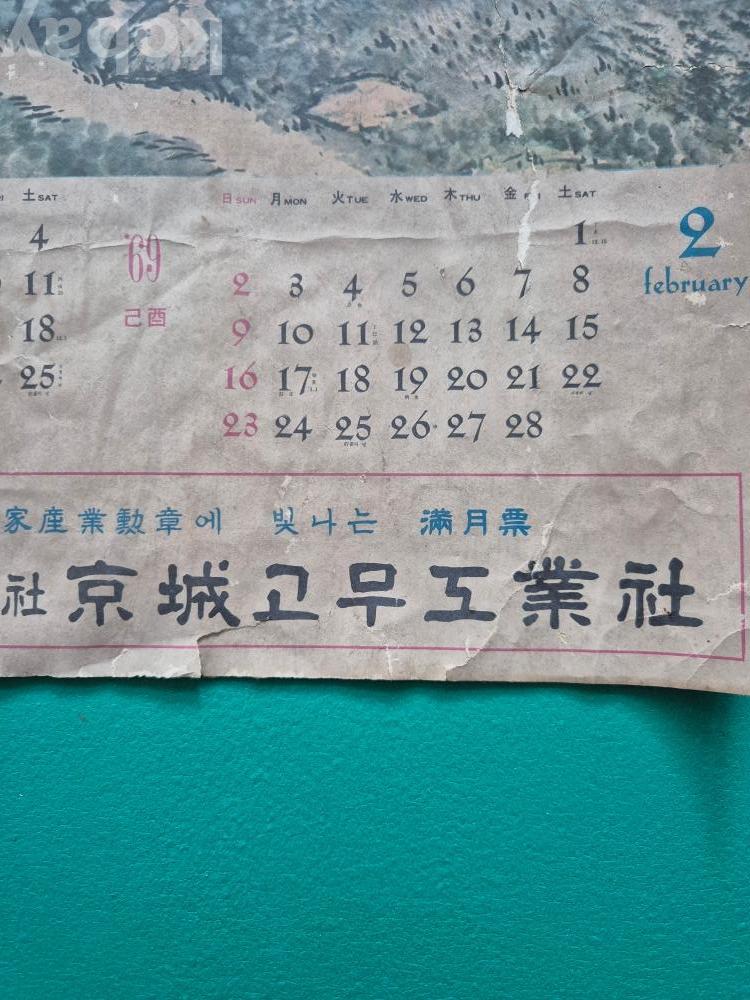 kobay
土SAT
4
11
18
25
'69
己酉
日SUN 月MON 火TUE 水WED 木THU 金FRI 土SAT
1
2 3 4 5 6 7 8
9 10 11 12 13 14 15
16 17 18 19 20 21 22
23 24 25 26 27 28
2
february
家産業勳章에 빛나는 滿月票
社 京城고무工業社